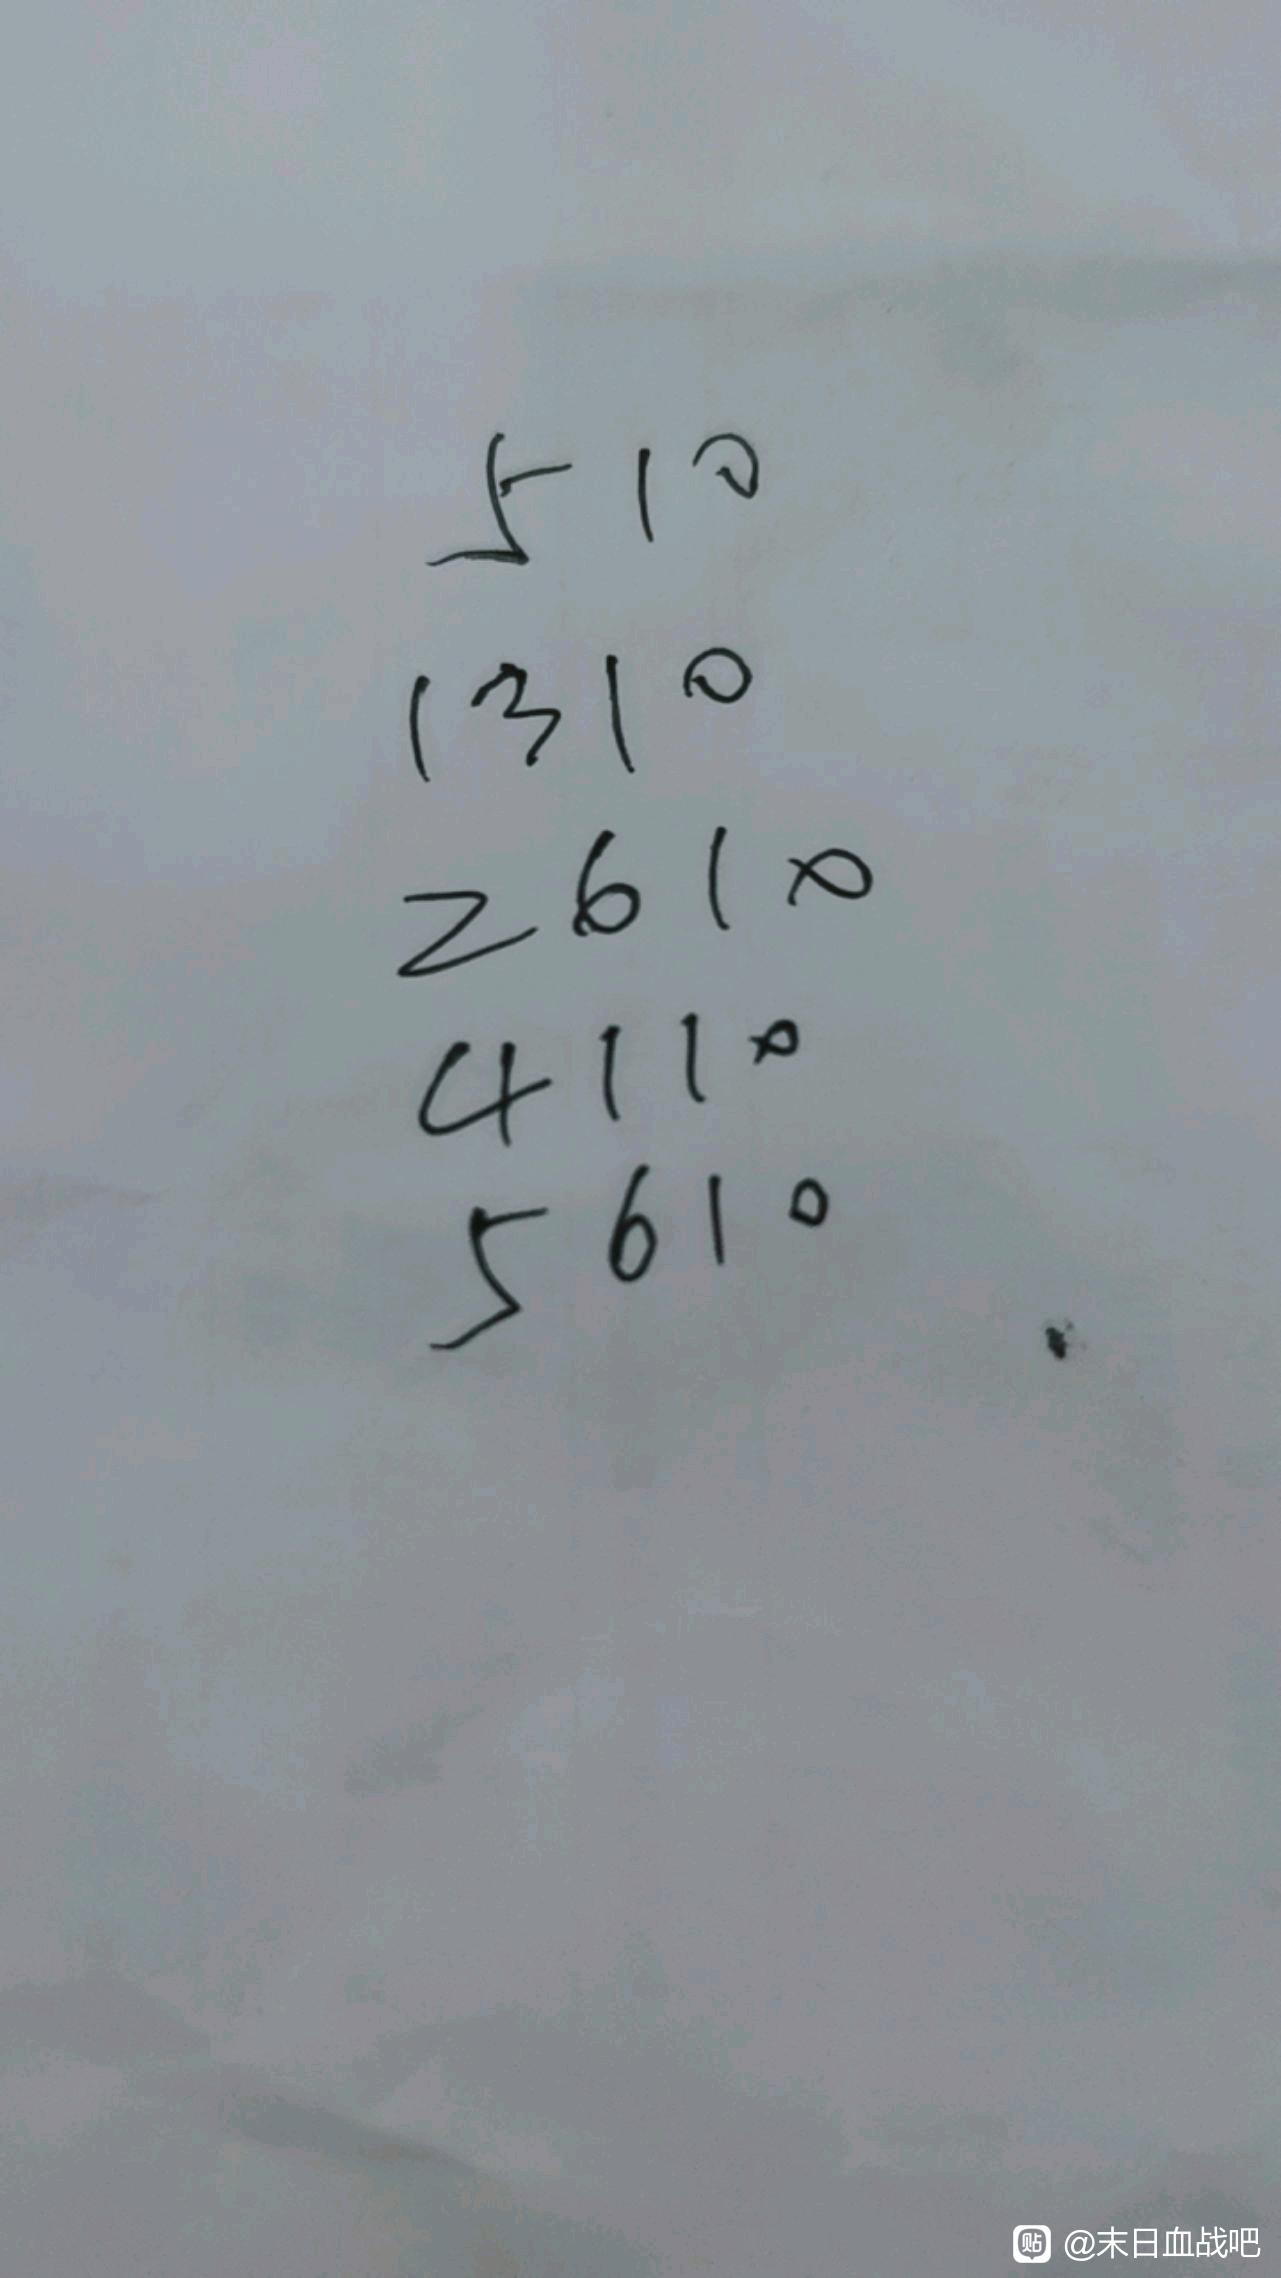 510
1310
2610
4110
5610
贴 @末日血战吧